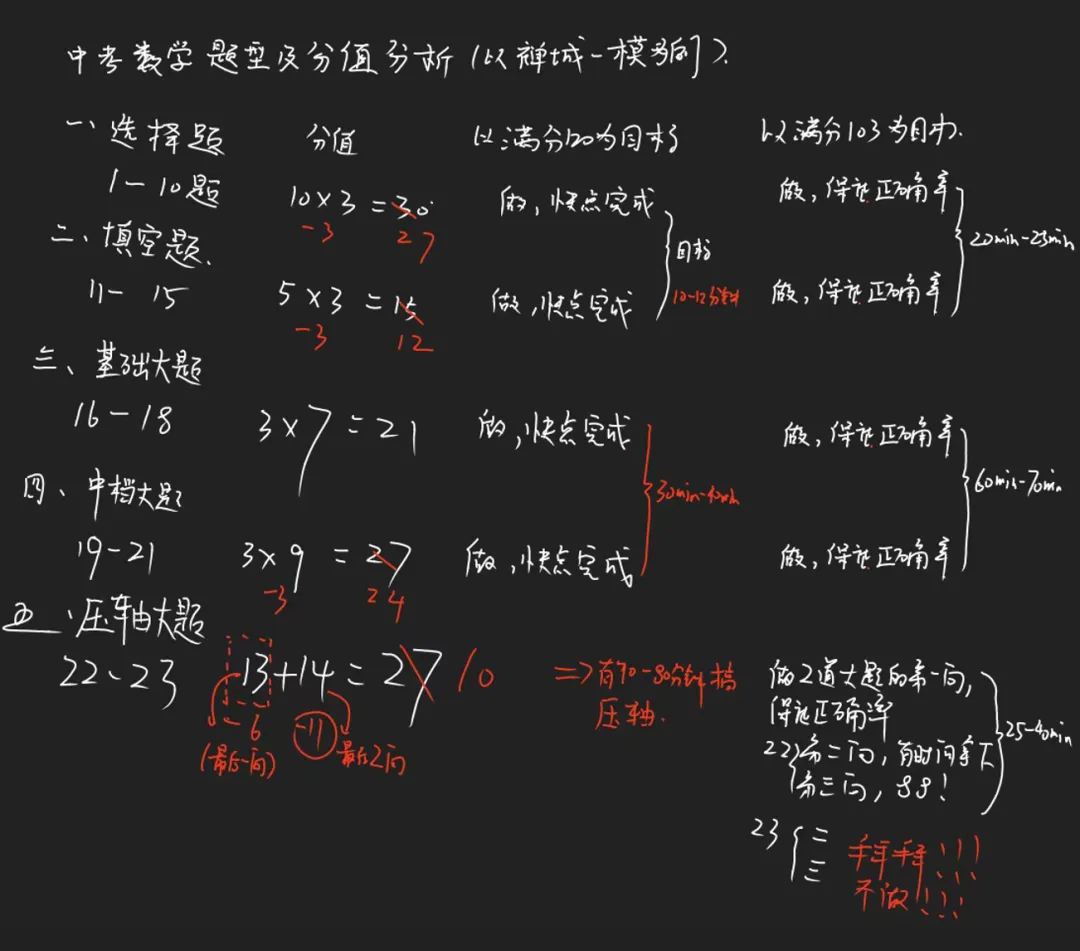 中考数学题型及分值分析(以禅城一模为例).
一、选择题 分值 以满分120为目标 以满分103为目标.
1-10题 10×3=30 做,快点完成 做,保证正确率
-3 27
二、填空题. 目标 20min-25min
11-15 5×3=15 做,快点完成 10-12分钟 做,保证正确率
-3 12
三、基础大题
16-18 3×7=21 做,快点完成 做,保证正确率
四、中档大题 30min-40min 60min-70min
19-21 3×9=27 做,快点完成 做,保证正确率
-3 24
五、压轴大题
22、23 13+14=27 10 =>有70-80分钟搞 做2道大题的第一问,
压轴. 保证正确率
-6 -11 25-40min
(最后一问) 最后2问 22 第二问,有时间拿下
第三问,88!
23 二 拜拜!!!
三 不做!!!